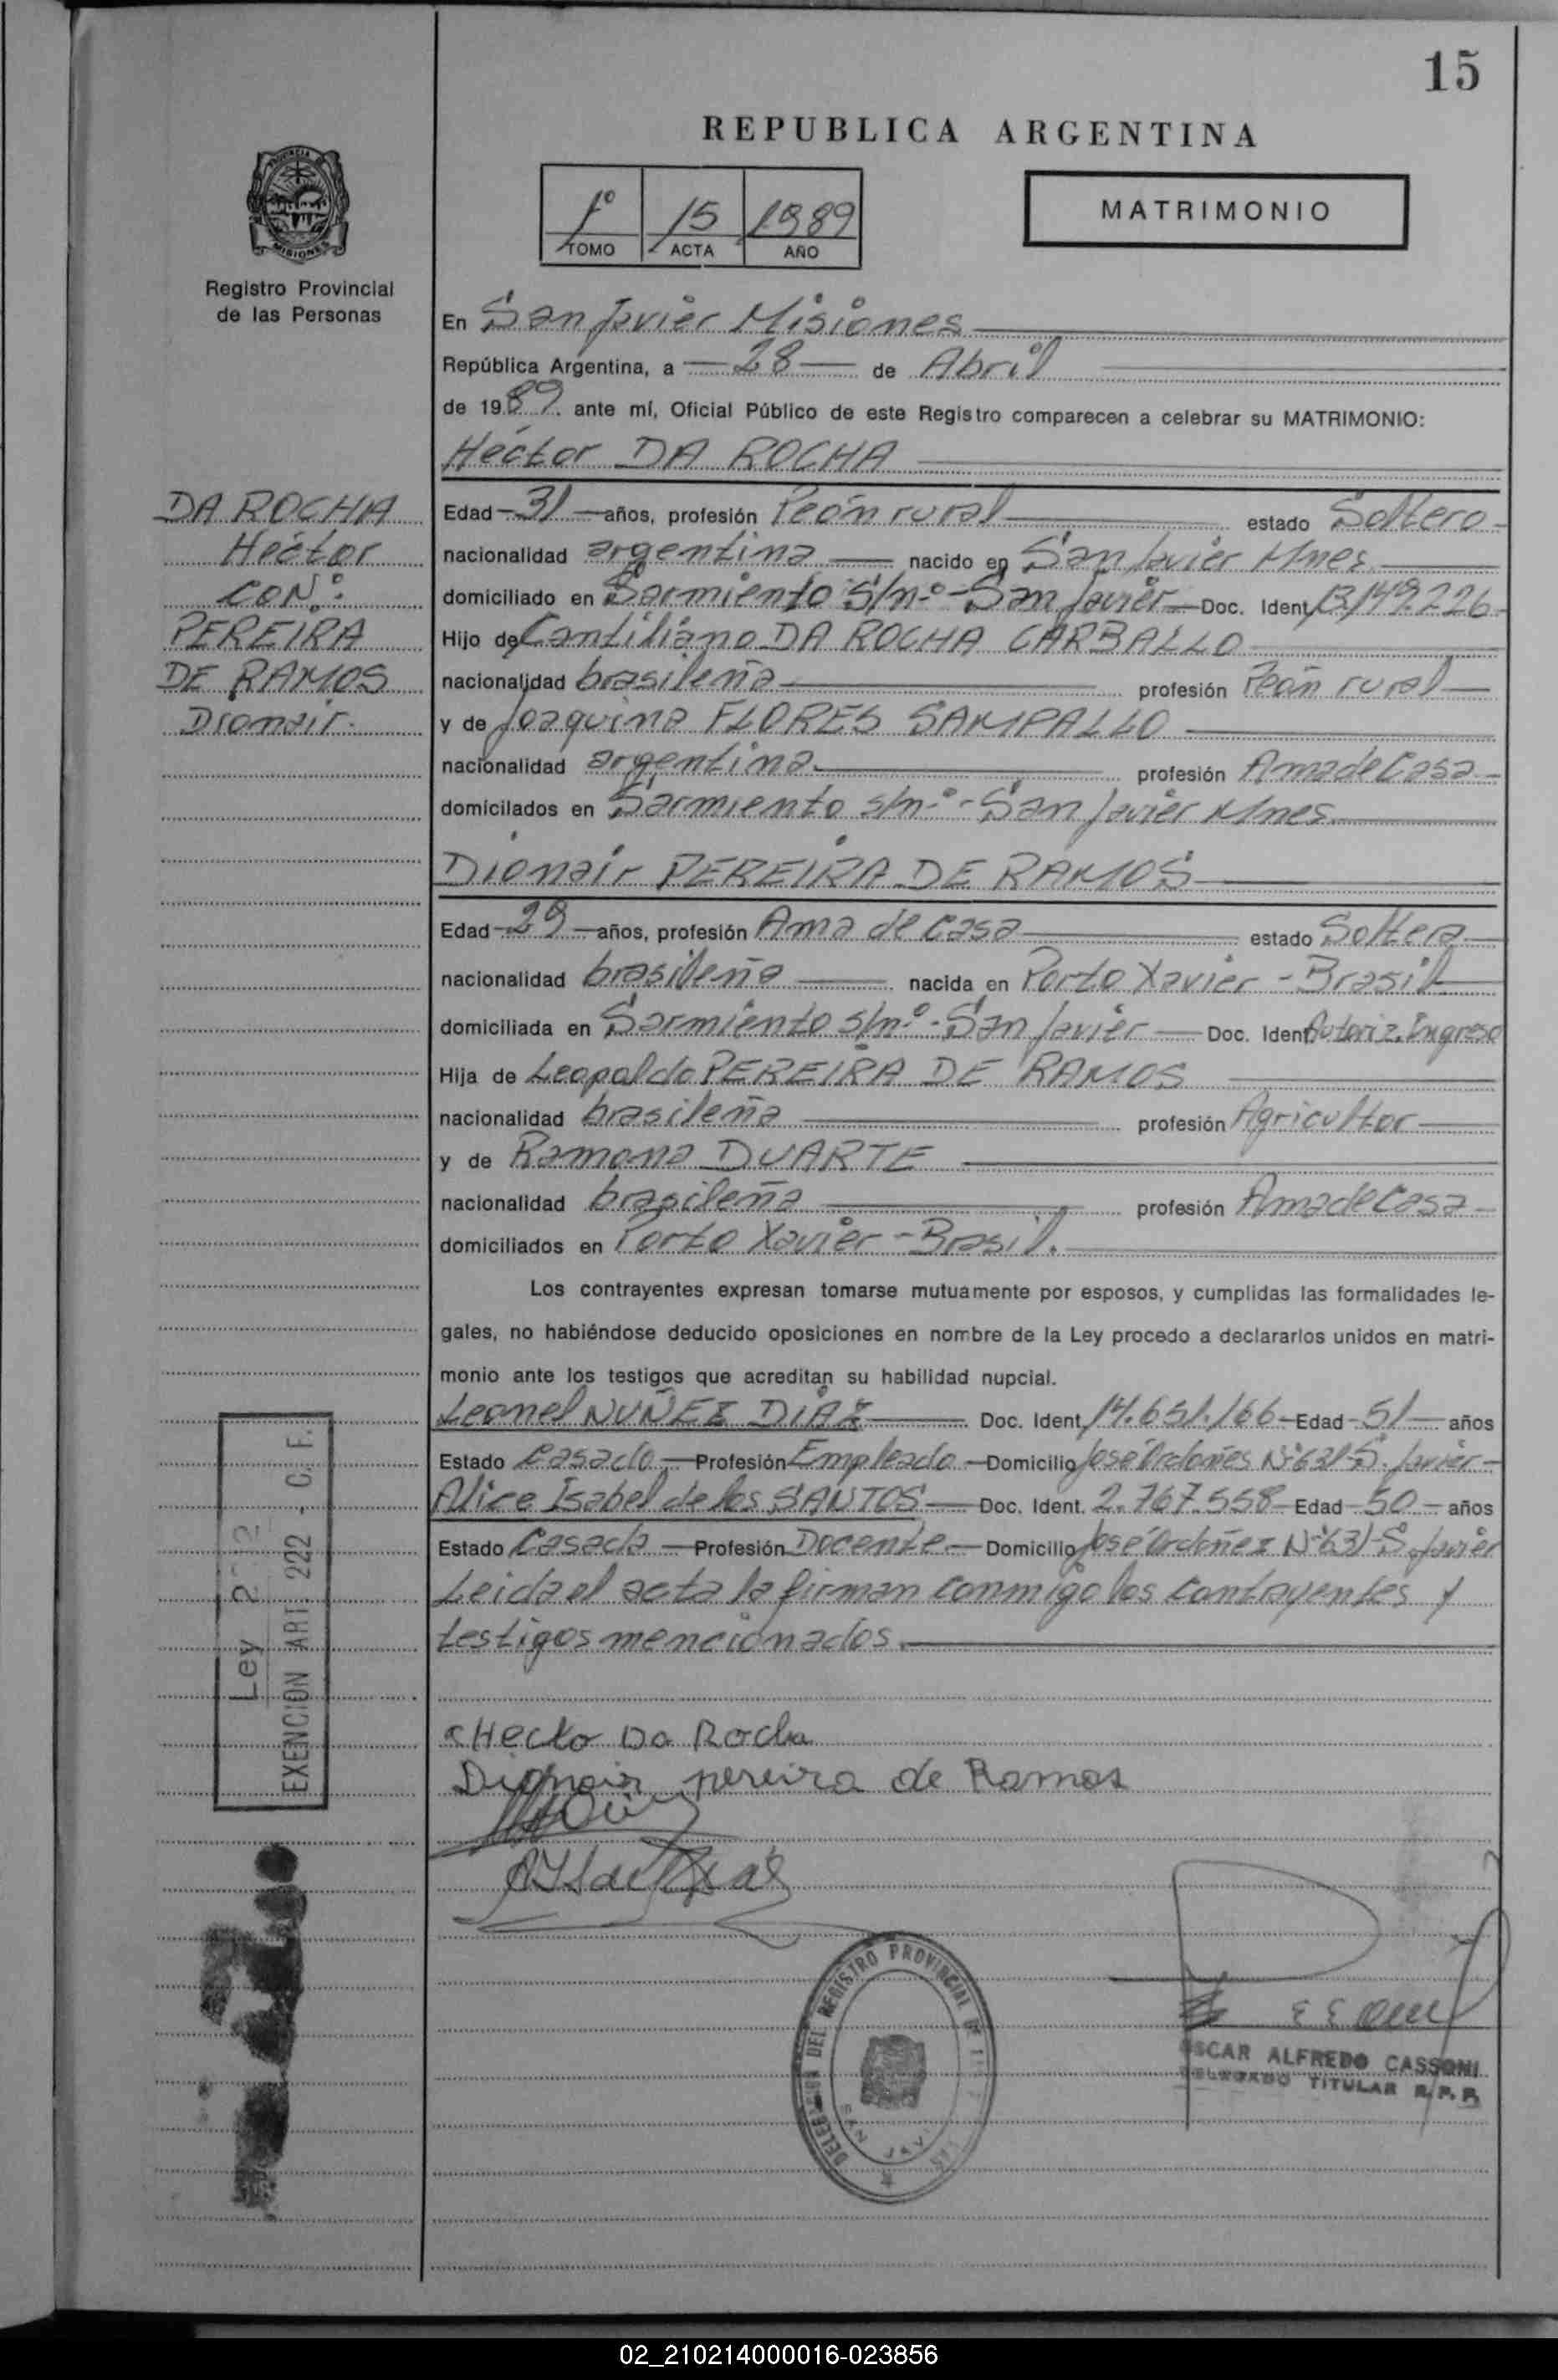 15
REPUBLICA ARGENTINA
1º 15 1989
TOMO ACTA AÑO
MATRIMONIO
PROVINCIA DE
MISIONES
Registro Provincial
de las Personas
En San Javier Misiones
República Argentina, a 28 de Abril
de 1989. ante mí, Oficial Público de este Registro comparecen a celebrar su MATRIMONIO:
Héctor DA ROCHA
DA ROCHA
Héctor
CON:
PEREIRA
DE RAMOS
Dionair.
Edad 31 años, profesión Peón rural estado Soltero
nacionalidad argentina nacido en San Javier Mnes
domiciliado en Sarmiento s/nº - San Javier Doc. Ident. 13.149.226
Hijo de Cantiliano DA ROCHA CARBALLO
nacionalidad brasileña profesión Peón rural
y de Joaquina FLORES SAMPALLO
nacionalidad argentina profesión Ama de Casa
domicilados en Sarmiento s/nº - San Javier Mnes
Dionair PEREIRA DE RAMOS
Edad 29 años, profesión Ama de Casa estado Soltera
nacionalidad brasileña nacida en Porto Xavier - Brasil
domiciliada en Sarmiento s/nº - San Javier Doc. Ident. Autoriz. Ingreso
Hija de Leopoldo PEREIRA DE RAMOS
nacionalidad brasileña profesión Agricultor
y de Ramona DUARTE
nacionalidad brasileña profesión Ama de Casa
domiciliados en Porto Xavier - Brasil.
Los contrayentes expresan tomarse mutuamente por esposos, y cumplidas las formalidades le-
gales, no habiéndose deducido oposiciones en nombre de la Ley procedo a declararlos unidos en matri-
monio ante los testigos que acreditan su habilidad nupcial.
Leonel NUÑEZ DIAZ Doc. Ident. 14.651.166 Edad 51 años
Estado Casado Profesión Empleado Domicilio José Ordoñes Nº 631 S. Javier
Alice Isabel de los SANTOS Doc. Ident. 2.767.558 Edad 50 años
Estado Casada Profesión Docente Domicilio José Ordoñez Nº 631 S. Javier
Leida el acta la firman conmigo los contrayentes y
testigos mencionados.
Ley
EXENCION ART. 222 - C. F.
Hecto Da Rocha
Dionair pereira de Ramos
DELEGACION DEL REGISTRO PROVINCIAL
SAN JAVI
OSCAR ALFREDO CASSONI
DELEGADO TITULAR R. P. P.
02_210214000016-023856